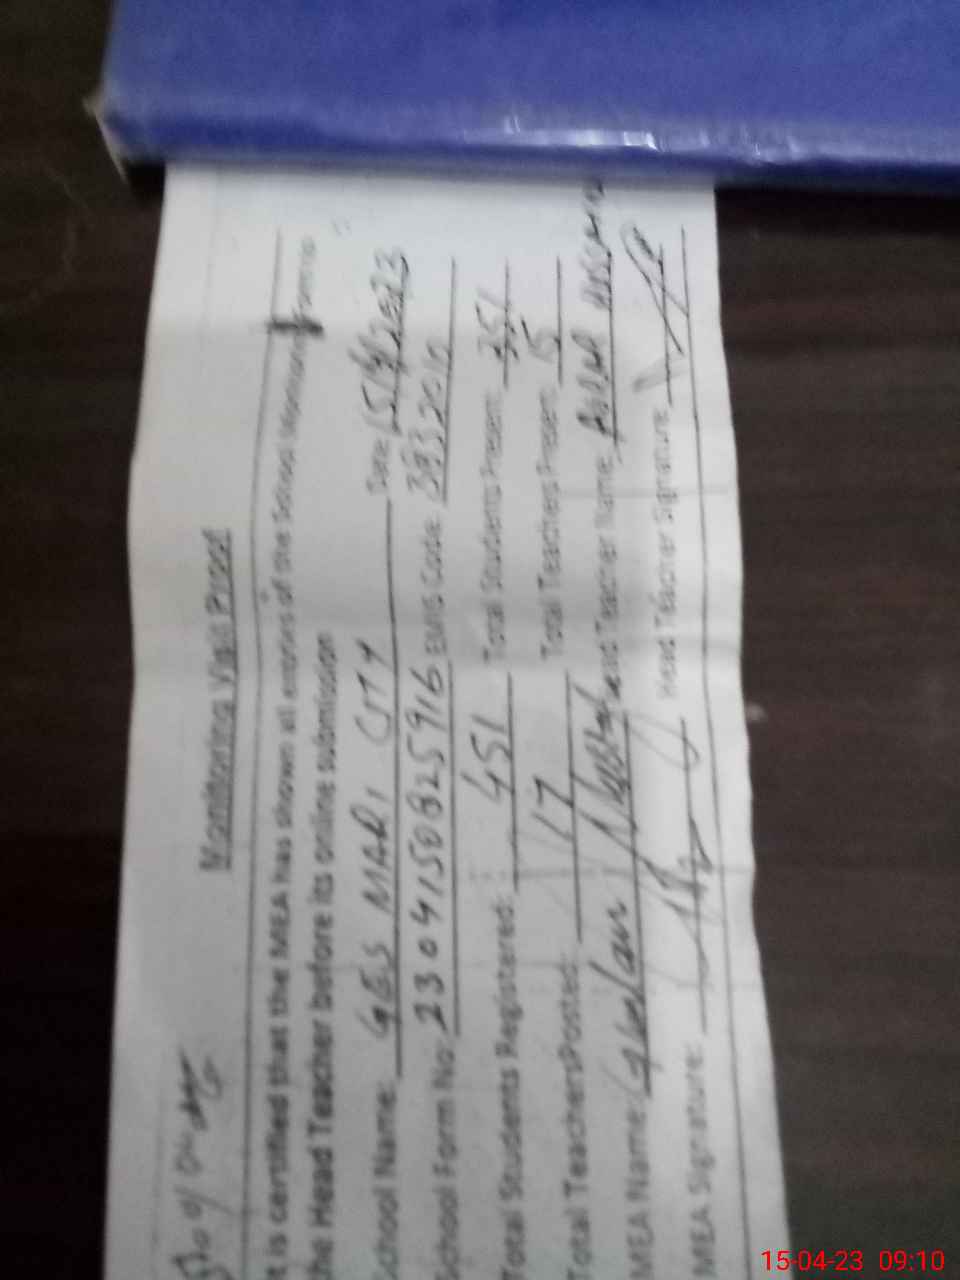 Monitoring Visit Proof
It is certified that the MEA has shown all entries of the School Monitoring Form to
the Head Teacher before its online submission
School Name: GES MARI CITY Date: 15/4/2023
School Form No: 2304150825916 EMIS Code: 3832010
Total Students Registered: 451 Total Students Present: 351
Total Teachers Posted: 17 Total Teachers Present: 15
MEA Name: Head Teacher Name:
MEA Signature: Head Teacher Signature:
15-04-23 09:10